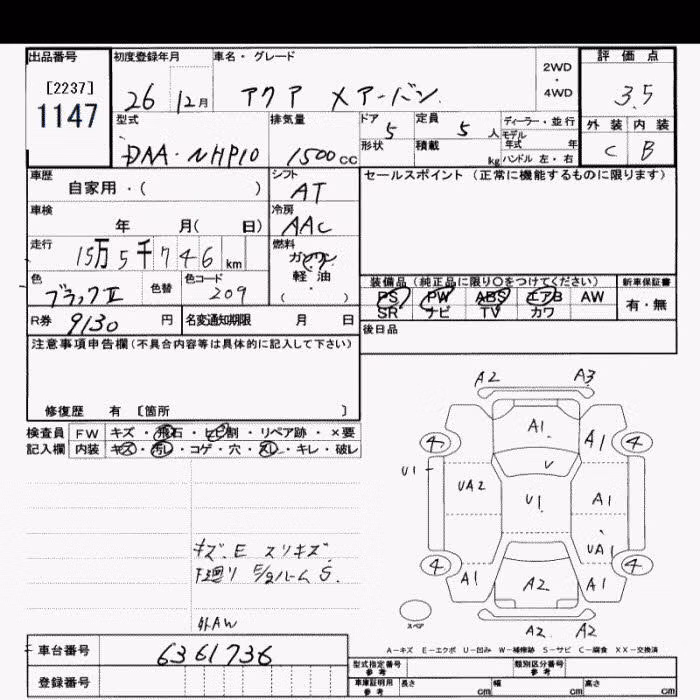 出品番号
[2237]
1147
初度登録年月
26 12月
車名・グレード
アクア メアーバン
2WD
・
4WD
評価点
3.5
外装 内装
C B
型式
DAA-NHP10
排気量
1500cc
ドア 5
定員 5 人
ディーラー・並行
モデル
年式 年
ハンドル 左・右
形状
積載 kg
車歴
自家用・( )
シフト
AT
セールスポイント(正常に機能するものに限ります)
車検
年 月( 日)
冷房
AAC
走行
15万5千746km
燃料
ガソリン
軽・油
・
( )
色
ブラックII
色替
色コード
209
装備品(純正品に限り○をつけてください)
PS PW ABS エアB AW
SR ナビ TV カワ
新車保証書
有・無
R券 9130 円
名変通知期限 月 日
後日品
注意事項申告欄(不具合内容等は具体的に記入して下さい)
修復歴 有 〔箇所 〕
検査員 FW キズ・飛石・ヒビ割・リペア跡・×要
記入欄 内装 キズ・汚レ・コゲ・穴・スレ・キレ・破レ
キズ.E スリキズ.
下廻り E/gルーム S.
外AW
A2 A3
A1
4 A1 4
U1 V
UA2 U1 A1
UA1
4 4
A1 A2 A1
スペア
A2 A2
A-キズ E-エクボ U-凹み W-補修跡 S-サビ C-腐食 XX-交換済
車台番号 6361736
登録番号
型式指定番号
参考
類別区分番号
参考
車庫証明用
参考
長さ cm
幅 cm
高さ cm